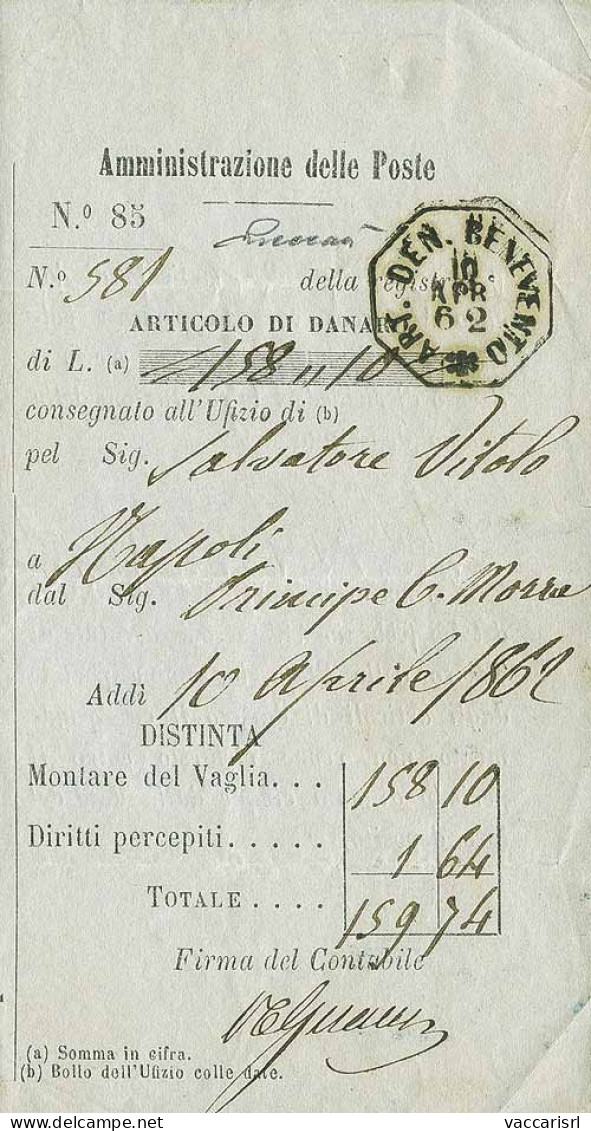 Amministrazione delle Poste
N.º 85
N.º 581 della registraz.e
ART. DEN. BENEVENTO
10
APR
62
ARTICOLO DI DANARO
di L. (a) 158 " 10
consegnato all'Ufizio di (b)
pel Sig. Salvatore Vitolo
a Napoli
dal Sig. Principe C. Morra
Addì 10 Aprile 1862
DISTINTA
Montare del Vaglia. . . 158 10
Diritti percepiti. . . . . 1 64
TOTALE . . . . 159 74
Firma del Contabile
(a) Somma in cifra.
(b) Bollo dell'Ufizio colle date.
www.delcampe.net
vaccarisrl